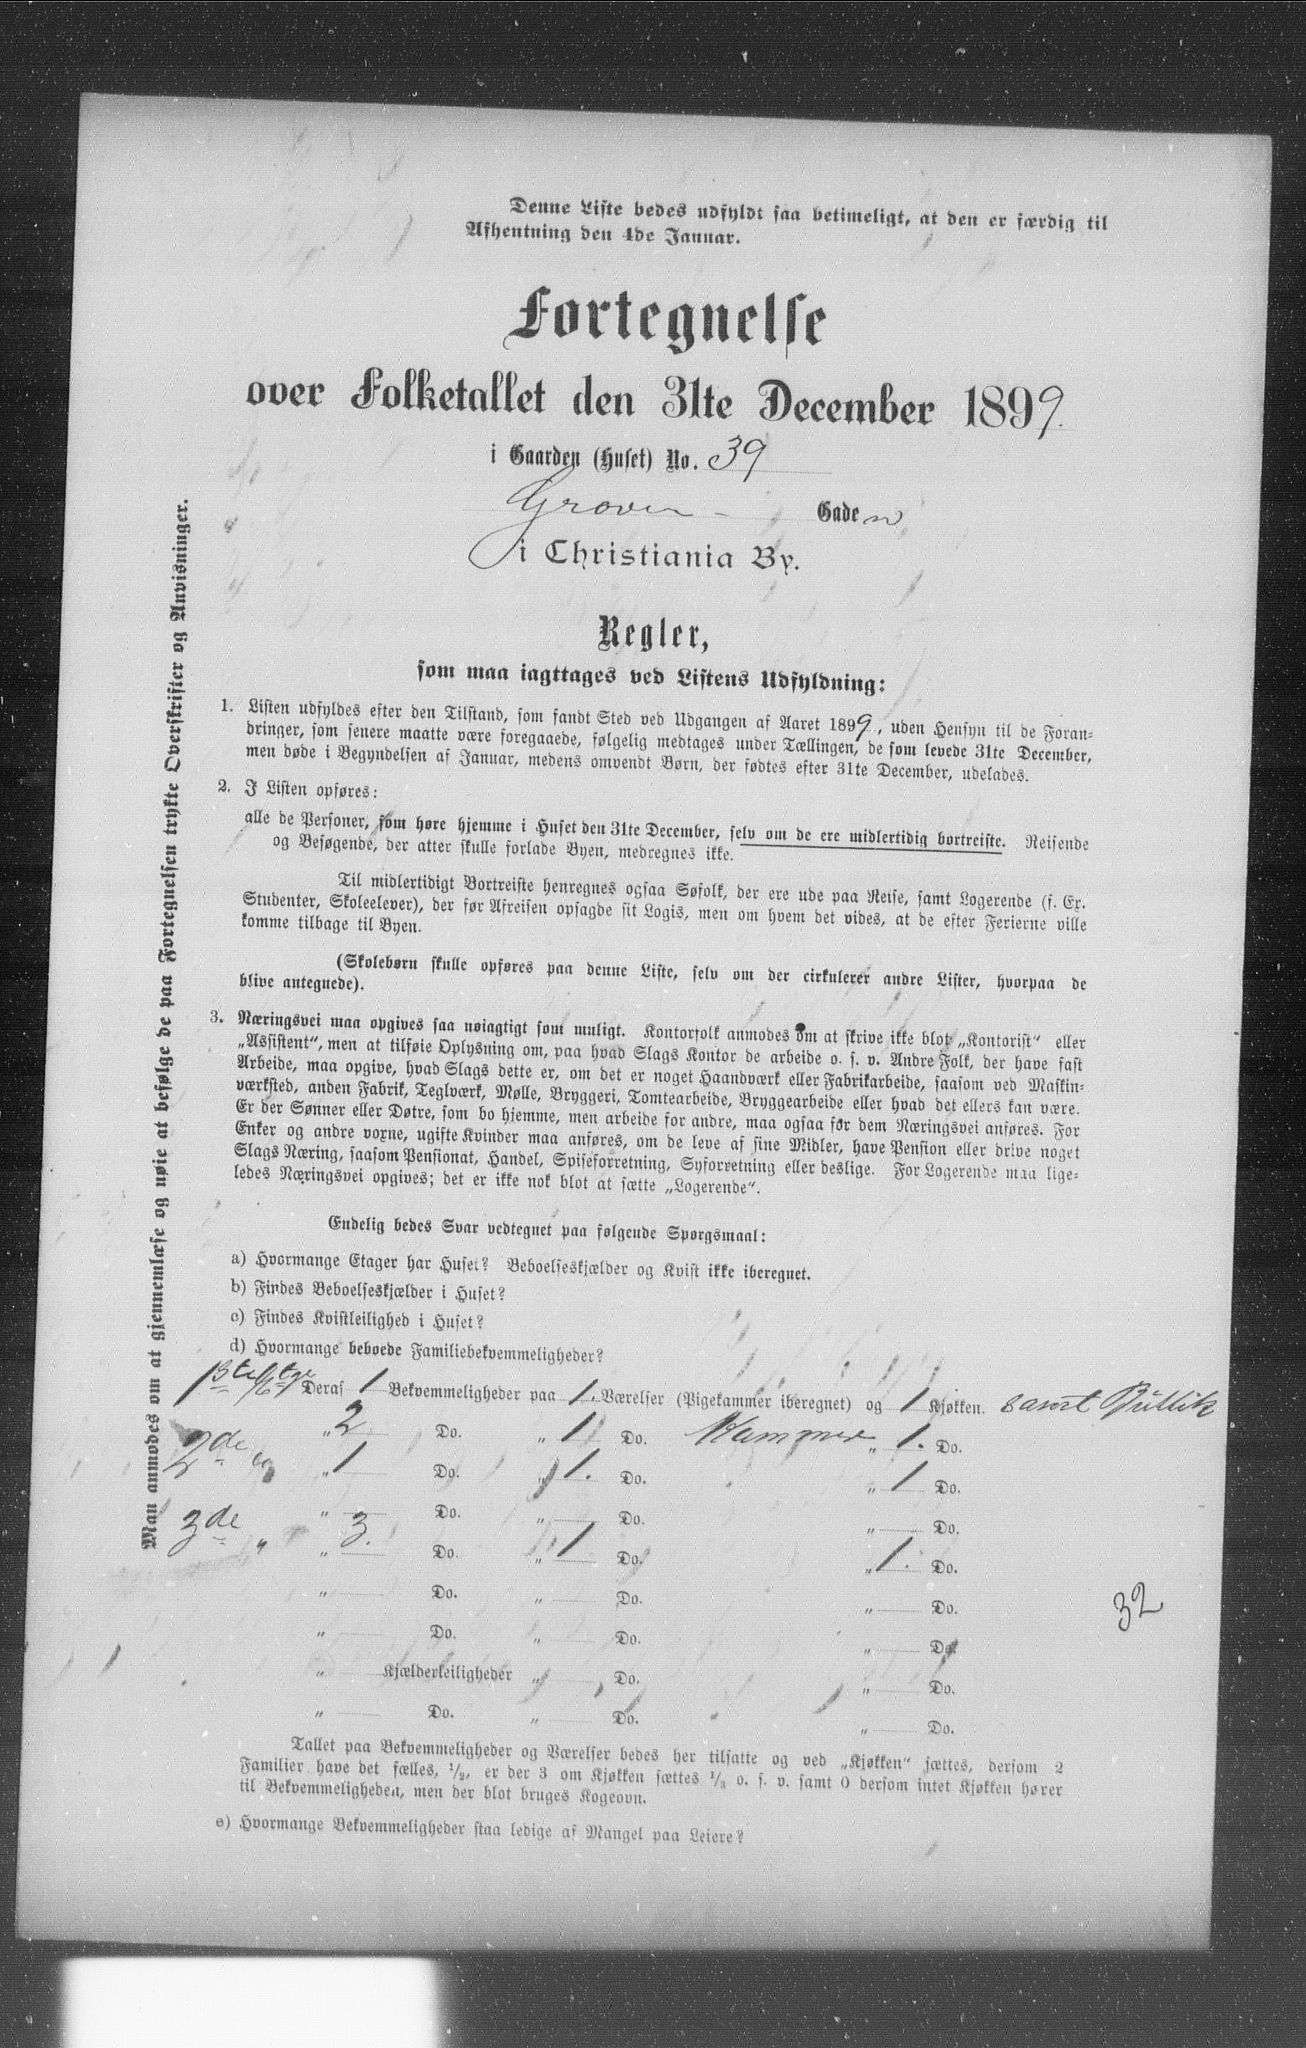 Denne Liste bedes udfyldt saa betimeligt, at den er færdig til
Afhentning den 4de Januar.
Fortegnelse
over Folketallet den 31te December 1899.
i Gaarden (Huset) No. 39
Grøver - Gaden
i Christiania By.
Regler,
som maa iagttages ved Listens Udfyldning:
1. Listen udfyldes efter den Tilstand, som fandt Sted ved Udgangen af Aaret 1899, uden Hensyn til de Foran-
dringer, som senere maatte være foregaaede, følgelig medtages under Tællingen, de som levede 31te December,
men døde i Begyndelsen af Januar, medens omvendt Børn, der fødtes efter 31te December, udelades.
2. I Listen opføres:
alle de Personer, som høre hjemme i Huset den 31te December, selv om de ere midlertidig bortreiste. Reisende
og Besøgende, der atter skulle forlade Byen, medregnes ikke.
Til midlertidigt Bortreiste henregnes ogsaa Søfolk, der ere ude paa Reise, samt Logerende (f. Ex.
Studenter, Skoleelever), der før Afreisen opsagde sit Logis, men om hvem det vides, at de efter Ferierne ville
komme tilbage til Byen.
(Skolebørn skulle opføres paa denne Liste, selv om der cirkulerer andre Lister, hvorpaa de
blive antegnede).
3. Næringsvei maa opgives saa nøiagtigt som muligt. Kontorfolk anmodes om at skrive ikke blot „Kontorist“ eller
„Assistent“, men at tilføie Oplysning om, paa hvad Slags Kontor de arbeide o. s. v. Andre Folk, der have fast
Arbeide, maa opgive, hvad Slags dette er, om det er noget Haandværk eller Fabrikarbeide, saasom ved Maskin-
værksted, anden Fabrik, Teglværk, Mølle, Bryggeri, Tomtearbeide, Bryggearbeide eller hvad det ellers kan være.
Er der Sønner eller Døtre, som bo hjemme, men arbeide for andre, maa ogsaa for dem Næringsvei anføres. For
Enker og andre voxne, ugifte Kvinder maa anføres, om de leve af sine Midler, have Pension eller drive noget
Slags Næring, saasom Pensionat, Handel, Spiseforretning, Syforretning eller deslige. For Logerende maa lige-
ledes Næringsvei opgives; det er ikke nok blot at sætte „Logerende“.
Endelig bedes Svar vedtegnet paa følgende Spørgsmaal:
a) Hvormange Etager har Huset? Beboelseskjælder og Kvist ikke iberegnet.
b) Findes Beboelseskjælder i Huset?
c) Findes Kvistleilighed i Huset?
d) Hvormange beboede Familiebekvemmeligheder?
1ste Etge Deraf 1 Bekvemmeligheder paa 1. Værelser (Pigekammer iberegnet) og 1 Kjøkken. samt Buttik
„ 2 Do. „ 1 Do. Kammer „ 1. Do.
2de „ „ 1 Do. „ 1. Do. „ 1 Do.
„ Do. „ Do. „ Do.
3de „ „ 3. Do. „ 1 Do. „ 1. Do.
„ Do. „ Do. „ Do.
32
„ Do. „ Do. „ Do.
„ Kjælderleiligheder „ Do. „ Do.
„ Do. „ Do. „ Do.
Tallet paa Bekvemmeligheder og Værelser bedes her tilsatte og ved „Kjøkken“ sættes, dersom 2
Familier have det fælles, 1/2, er der 3 om Kjøkken sættes 1/3 o. s. v. samt 0 dersom intet Kjøkken hører
til Bekvemmeligheden, men der blot bruges Kogeovn.
e) Hvormange Bekvemmeligheder staa ledige af Mangel paa Leiere?
Man anmodes om at gjennemlæse og nøie at befølge de paa Fortegnelsen trykte Overskrifter og Anvisninger.